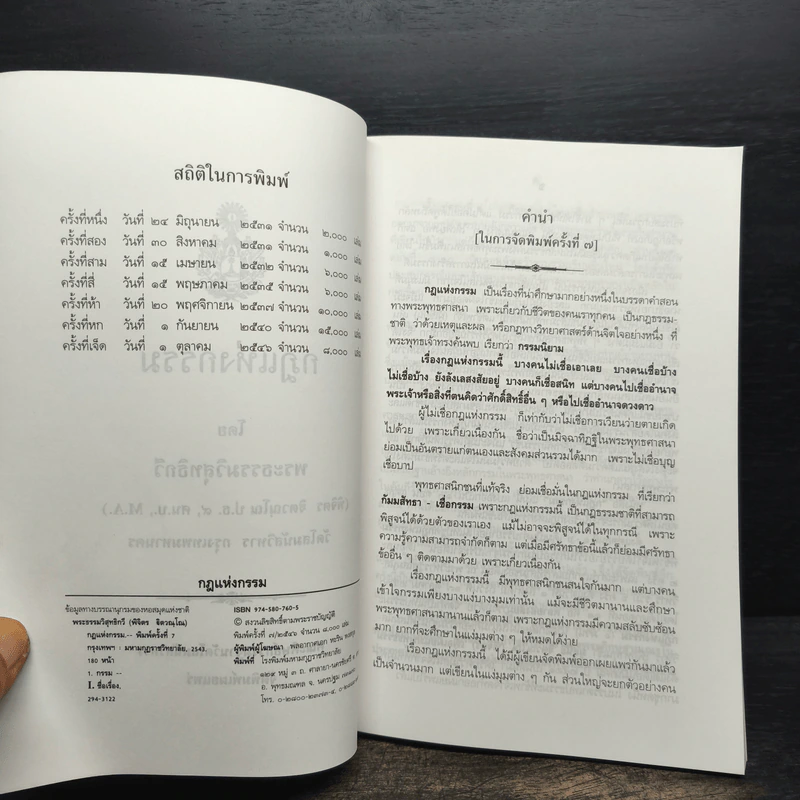 สถิติในการพิมพ์
ครั้งที่หนึ่ง วันที่ ๒๔ มิถุนายน ๒๕๓๑ จำนวน ๒,๐๐๐ เล่ม
ครั้งที่สอง วันที่ ๓๐ สิงหาคม ๒๕๓๑ จำนวน ๑,๐๐๐ เล่ม
ครั้งที่สาม วันที่ ๑๕ เมษายน ๒๕๓๒ จำนวน ๖,๐๐๐ เล่ม
ครั้งที่สี่ วันที่ ๑๕ พฤษภาคม ๒๕๓๕ จำนวน ๖,๐๐๐ เล่ม
ครั้งที่ห้า วันที่ ๒๐ พฤศจิกายน ๒๕๓๗ จำนวน ๑๐,๐๐๐ เล่ม
ครั้งที่หก วันที่ ๑ กันยายน ๒๕๔๐ จำนวน ๑๕,๐๐๐ เล่ม
ครั้งที่เจ็ด วันที่ ๑ ตุลาคม ๒๕๔๖ จำนวน ๘,๐๐๐ เล่ม
กฎแห่งกรรม
ข้อมูลทางบรรณานุกรมของหอสมุดแห่งชาติ
พระธรรมวิสุทธิกวี (พิจิตร ฐิตวณฺโณ)
กฎแห่งกรรม.-- พิมพ์ครั้งที่ 7
กรุงเทพฯ : มหามกุฏราชวิทยาลัย, 2543.
180 หน้า
1. กรรม --
I. ชื่อเรื่อง.
294-3122
ISBN 974-580-760-5
© สงวนลิขสิทธิ์ตามพระราชบัญญัติ
พิมพ์ครั้งที่ ๗/๒๕๔๖ จำนวน ๘,๐๐๐ เล่ม
ผู้พิมพ์ผู้โฆษณา พลอากาศเอก หะริน
พิมพ์ที่ โรงพิมพ์มหามกุฏราชวิทยาลัย
๑๒๙ หมู่ ๓ ถ. ศาลายา-นครชัยศรี
อ. พุทธมณฑล จ. นครปฐม
โทร. ๐-๒๘๐๐-๒๓๗๓-๔,
คำนำ
[ในการจัดพิมพ์ครั้งที่ ๗]
กฎแห่งกรรม เป็นเรื่องที่น่าศึกษามากอย่างหนึ่งในบรรดาคำสอน
ทางพระพุทธศาสนา เพราะเกี่ยวกับชีวิตของคนเราทุกคน เป็นกฎธรรม-
ชาติ ว่าด้วยเหตุและผล หรือกฎทางวิทยาศาสตร์ด้านจิตใจอย่างหนึ่ง ที่
พระพุทธเจ้าทรงค้นพบ เรียกว่า กรรมนิยาม
เรื่องกฎแห่งกรรมนี้ บางคนไม่เชื่อเอาเลย บางคนเชื่อบ้าง
ไม่เชื่อบ้าง ยังลังเลสงสัยอยู่ บางคนก็เชื่อสนิท แต่บางคนไปเชื่ออำนาจ
พระเจ้าหรือสิ่งที่ตนคิดว่าศักดิ์สิทธิ์อื่น ๆ หรือไปเชื่ออำนาจดวงดาว
ผู้ไม่เชื่อกฎแห่งกรรม ก็เท่ากับว่าไม่เชื่อการเวียนว่ายตายเกิด
ไปด้วย เพราะเกี่ยวเนื่องกัน ชื่อว่าเป็นมิจฉาทิฏฐิในพระพุทธศาสนา
ย่อมเป็นอันตรายแก่ตนเองและสังคมส่วนรวมได้มาก เพราะไม่เชื่อบุญ
เชื่อบาป
พุทธศาสนิกชนที่แท้จริง ย่อมเชื่อมั่นในกฎแห่งกรรม ที่เรียกว่า
กัมมสัทธา - เชื่อกรรม เพราะกฎแห่งกรรมนี้ เป็นกฎธรรมชาติที่สามารถ
พิสูจน์ได้ด้วยตัวของเราเอง แม้ไม่อาจจะพิสูจน์ได้ในทุกกรณี เพราะ
ความรู้ความสามารถจำกัดก็ตาม แต่เมื่อมีศรัทธาข้อนี้แล้วก็ย่อมมีศรัทธา
ข้ออื่น ๆ ติดตามมาด้วย เพราะเกี่ยวเนื่องกัน
เรื่องกฎแห่งกรรมนี้ มีพุทธศาสนิกชนสนใจกันมาก แต่บางคน
เข้าใจกฎแห่งกรรมเพียงบางแง่บางมุมเท่านั้น แม้จะมีชีวิตมานานและศึกษา
พระพุทธศาสนามานานแล้วก็ตาม เพราะกฎแห่งกรรมมีความสลับซับซ้อน
มาก ยากที่จะศึกษาในแง่มุมต่าง ๆ ให้หมดได้ง่าย
เรื่องกฎแห่งกรรมนี้ ได้มีผู้เขียนจัดพิมพ์ออกเผยแพร่กันมาแล้ว
เป็นจำนวนมาก แต่เขียนในแง่มุมต่าง ๆ กัน ส่วนใหญ่จะยกตัวอย่างคน